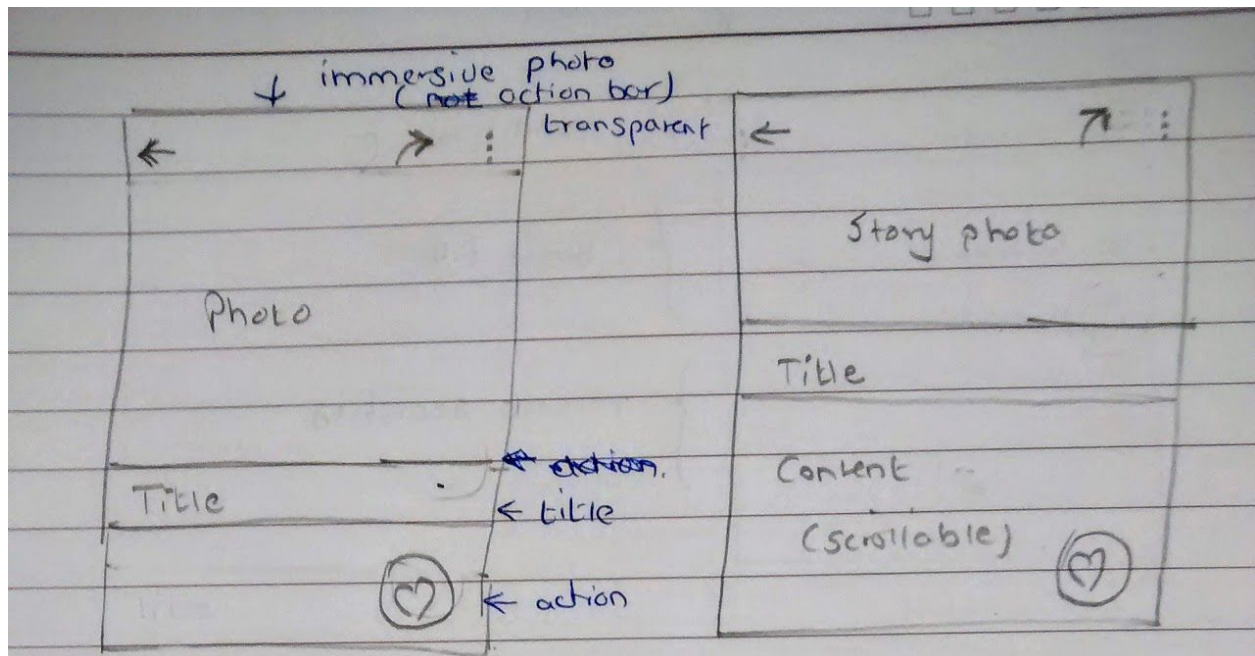 immersive photo
(not action bar)
transparent
Photo
Title
action.
title
action
Story photo
Title
Content
(scrollable)